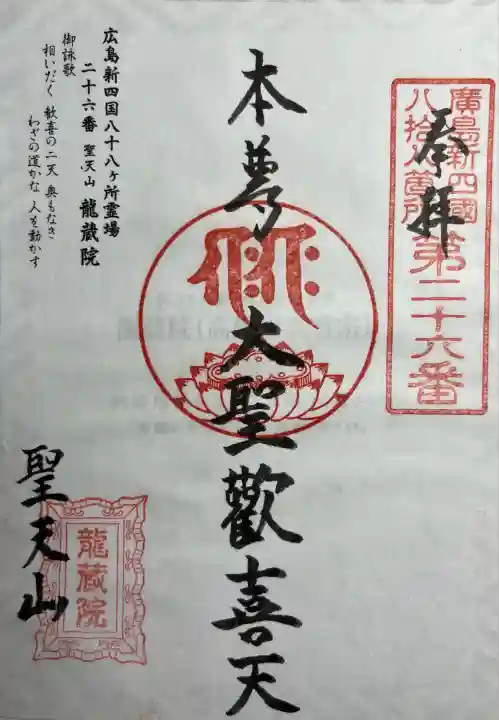 奉拝
廣島新四國
八拾八箇所
第二十六番
本尊 大聖歡喜天
広島新四国八十八ヶ所霊場
二十六番 聖天山 龍蔵院
御詠歌
相いだく 歓喜の二天 奥もなき
わざの道かな 人を動かす
聖天山
龍蔵院